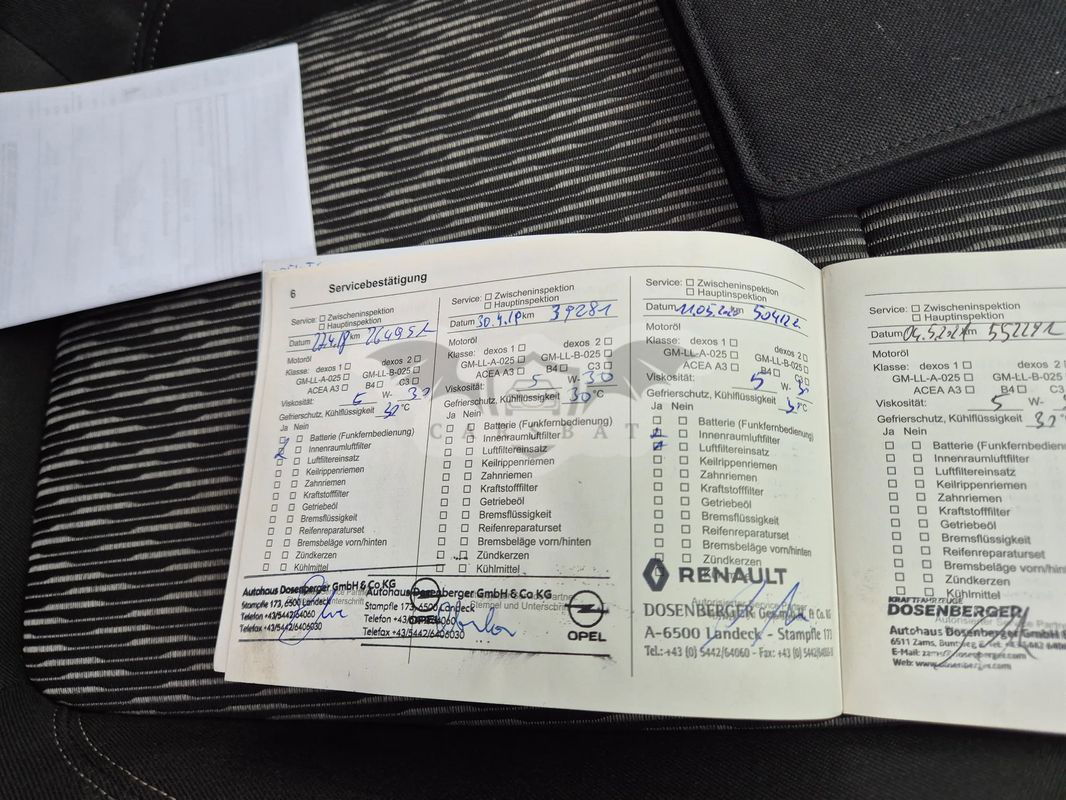 6 Servicebestätigung
Service: Zwischeninspektion
Hauptinspektion
Datum km 26495
Motoröl
Klasse: dexos 1 dexos 2
GM-LL-A-025 GM-LL-B-025
ACEA A3 B4 C3
Viskosität: 5 W- 30
Gefrierschutz, Kühlflüssigkeit 30 °C
Ja Nein
Batterie (Funkfernbedienung)
Innenraumluftfilter
Luftfiltereinsatz
Keilrippenriemen
Zahnriemen
Kraftstofffilter
Getriebeöl
Bremsflüssigkeit
Reifenreparaturset
Bremsbeläge vorn/hinten
Zündkerzen
Kühlmittel
Autohaus Dosenberger GmbH & Co KG
Stampfle 173, 6500 Landeck
Telefon +43/5442/64060
Telefax +43/5442/6406030
Service: Zwischeninspektion
Hauptinspektion
Datum km 39281
Motoröl
Klasse: dexos 1 dexos 2
GM-LL-A-025 GM-LL-B-025
ACEA A3 B4 C3
Viskosität: 5 W- 30
Gefrierschutz, Kühlflüssigkeit 30 °C
Ja Nein
Batterie (Funkfernbedienung)
Innenraumluftfilter
Luftfiltereinsatz
Keilrippenriemen
Zahnriemen
Kraftstofffilter
Getriebeöl
Bremsflüssigkeit
Reifenreparaturset
Bremsbeläge vorn/hinten
Zündkerzen
Kühlmittel
Autohaus Dosenberger GmbH & Co KG
Stempel und Unterschrift
Stampfle 173, 6500 Landeck
Telefon +43/5442/64060
Telefax +43/5442/6406030
OPEL
Service: Zwischeninspektion
Hauptinspektion
Datum 11.05.2020 km 50412
Motoröl
Klasse: dexos 1 dexos 2
GM-LL-A-025 GM-LL-B-025
ACEA A3 B4 C3
Viskosität: 5 W- 30
Gefrierschutz, Kühlflüssigkeit °C
Ja Nein
Batterie (Funkfernbedienung)
Innenraumluftfilter
Luftfiltereinsatz
Keilrippenriemen
Zahnriemen
Kraftstofffilter
Getriebeöl
Bremsflüssigkeit
Reifenreparaturset
Bremsbeläge vorn/hinten
Zündkerzen
RENAULT
DOSENBERGER & Co KG
A-6500 Landeck - Stampfle 173
Tel.: +43 (0) 5442/64060 - Fax: +43 (0)
Service: Zwischeninspektion
Hauptinspektion
Datum 04.5.2021 km 55229
Motoröl
Klasse: dexos 1 dexos 2
GM-LL-A-025 GM-LL-B-025
ACEA A3 B4 C3
Viskosität: 5 W-
Gefrierschutz, Kühlflüssigkeit
Ja Nein
Batterie (Funkfernbedienung
Innenraumluftfilter
Luftfiltereinsatz
Keilrippenriemen
Zahnriemen
Kraftstofffilter
Getriebeöl
Bremsflüssigkeit
Reifenreparaturset
Bremsbeläge vorn/hinten
Zündkerzen
Kühlmittel
KRAFTFAHRZEUGE
DOSENBERGER
Autorisierter Service Partner
Autohaus Dosenberger GmbH
6511 Zams,
E-Mail:
Web: www.dosenberger.com